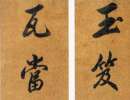 玉笈
瓦當